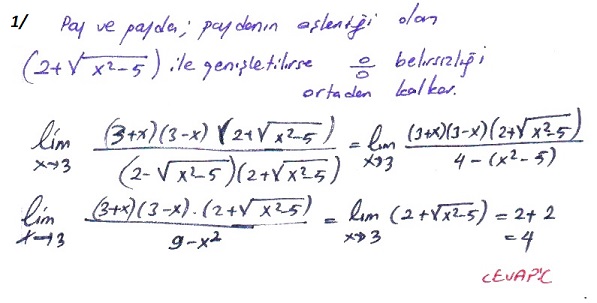 1/ Pay ve payda; paydanın eşleniği olan
(2+√x²-5) ile genişletilirse 0/0 belirsizliği
ortadan kalkar.
lim x→3 (3+x)(3-x)(2+√x²-5) / (2-√x²-5)(2+√x²-5) = lim x→3 (3+x)(3-x)(2+√x²-5) / 4-(x²-5)
lim x→3 (3+x)(3-x).(2+√x²-5) / 9-x² = lim x→3 (2+√x²-5) = 2+2
=4
CEVAP:C